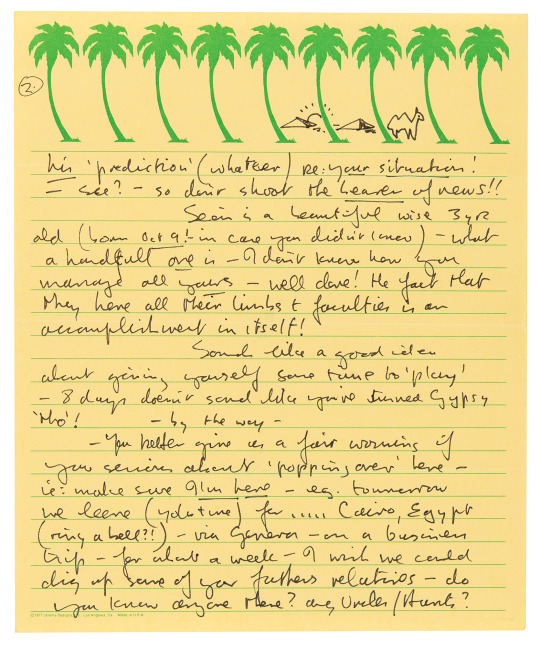 2.
his 'prediction' (whatever) re: your situation!
I see? - so don't shoot the bearer of news!!
Sean is a beautiful wise 3 yr
old (born Oct 9! - in case you didn't know) - what
a handfull one is - I don't know how you
manage all yours - well done! The fact that
they have all their limbs & faculties is an
accomplishment in itself!
Sounds like a good idea
about giving yourself some time to 'play'
- 8 days doesn't sound like you've turned Gypsy
'tho'! - by the way -
- You better give us a fair warning if
you serious about 'popping over' here -
ie: make sure I'm here - eg. tomorrow
we leave (yoko + me) for ..... Cairo, Egypt
(ring a bell?!) - via Geneva - on a business
trip - for about a week - I wish we could
dig up some of your fathers relatives - do
you know anyone there? any Uncles/Aunts?
© 1977 Los Angeles, Ca. Made in U.S.A.